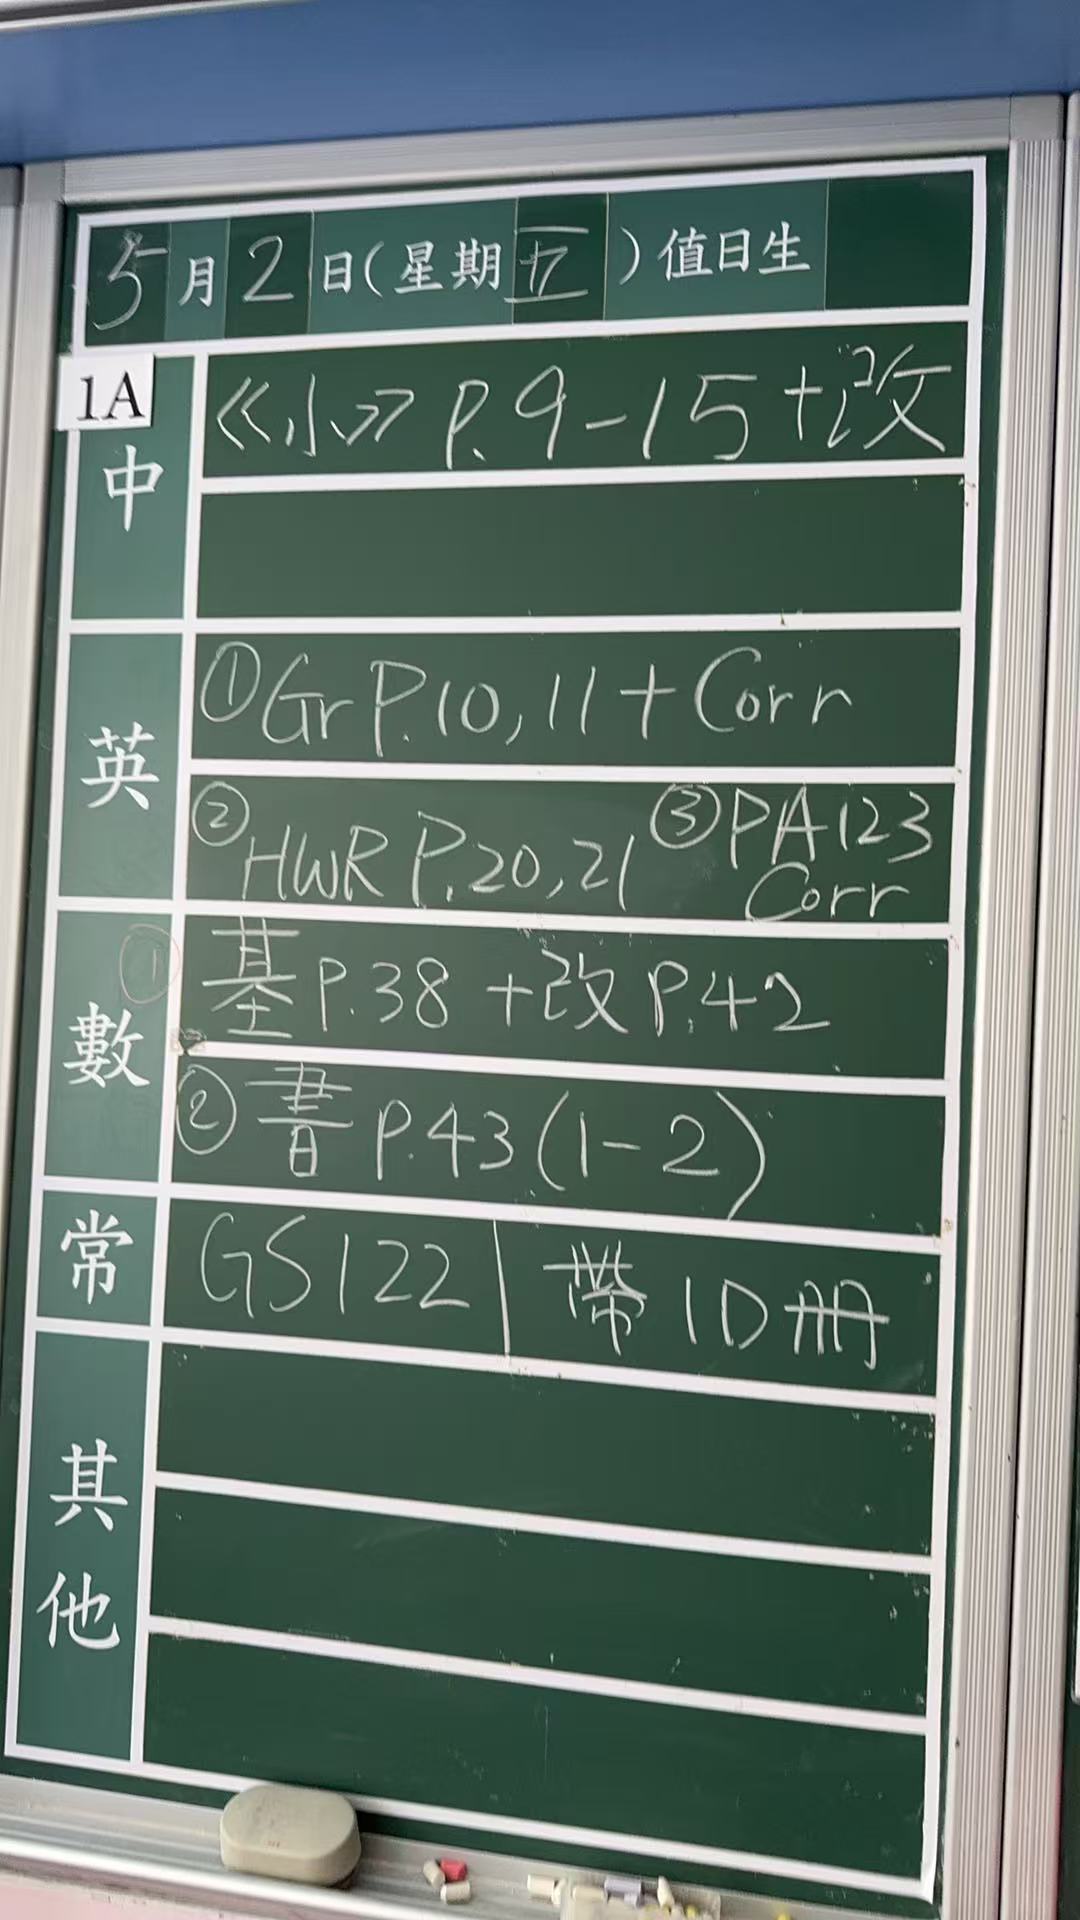 5月2日(星期五)值日生
1A
中
《小》P.9-15+改
英
①Gr P.10,11+Corr
②HWR P.20,21 ③PA123 Corr
數
①基P.38+改P.42
②書P.43(1-2)
常
GS122 | 帶1D冊
其他